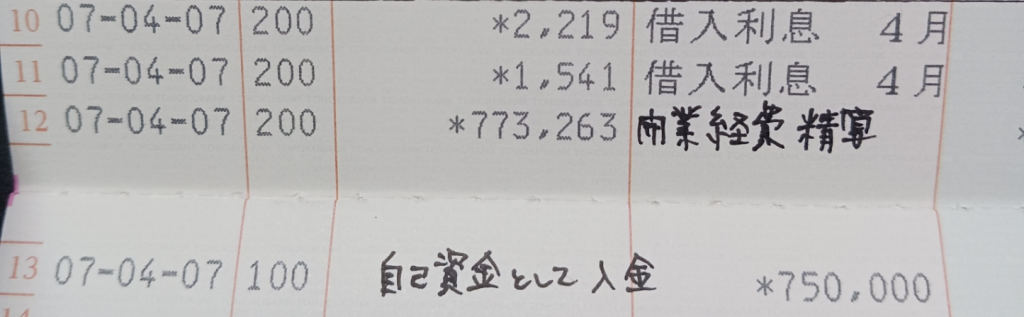 10 07-04-07 200 *2,219 借入利息 4月
11 07-04-07 200 *1,541 借入利息 4月
12 07-04-07 200 *773,263 開業経費精算
13 07-04-07 100 自己資金として入金 *750,000